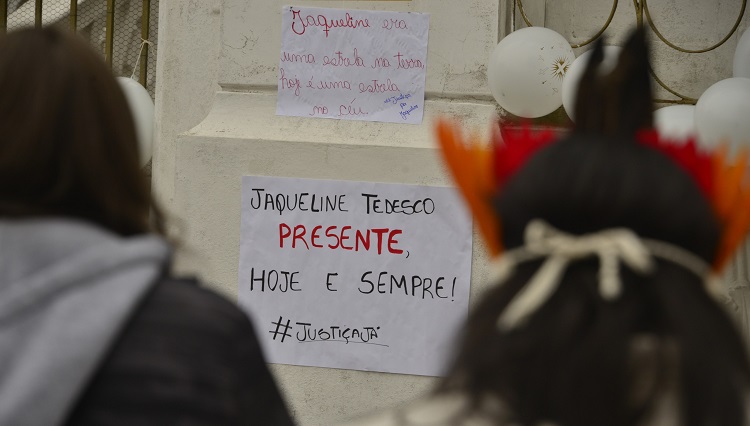 Jaqueline era
uma estrela na terra,
hoje é uma estrela
no céu.
#Justiça
por
Jaqueline
JAQUELINE TEDESCO
PRESENTE,
HOJE E SEMPRE!
#JUSTIÇAJÁ